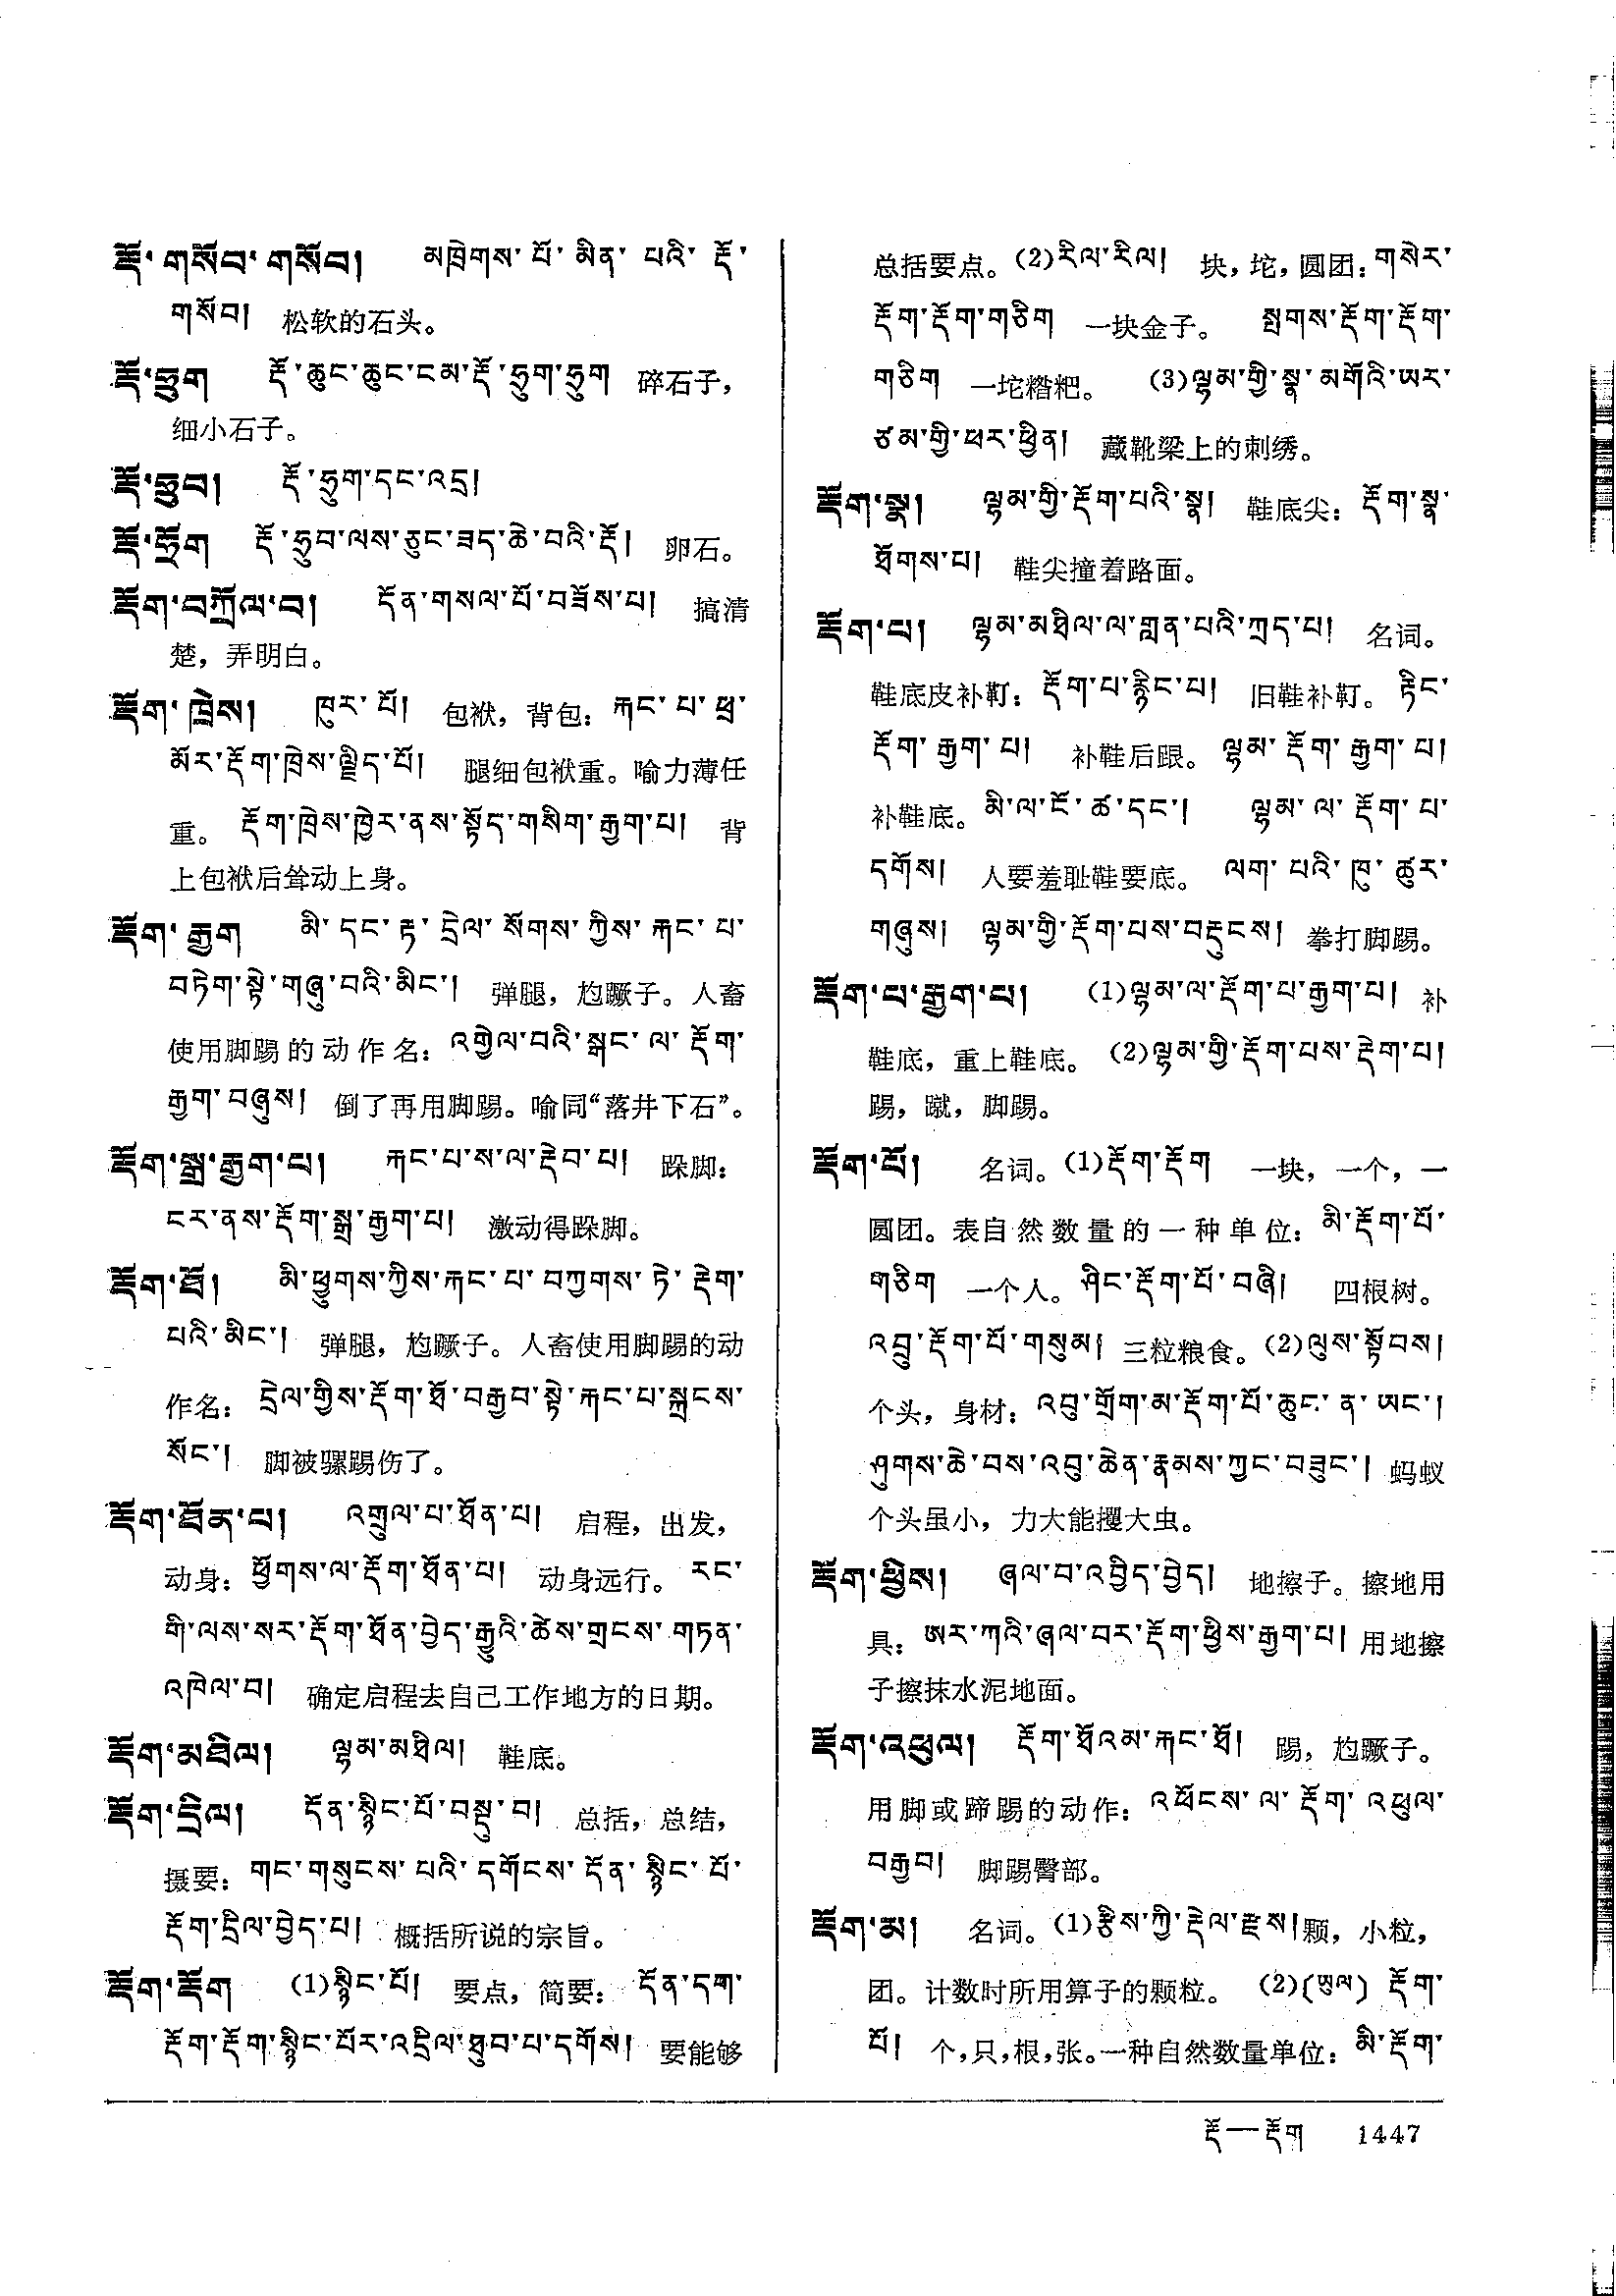 རྡོ་གསོབ་གསོབ། མཁྲེགས་པོ་མིན་པའི་རྡོ་
གསོབ། 松软的石头。
རྡོ་ཧྲུག རྡོ་ཆུང་ཆུང་ངམ་རྡོ་ཧྲུག་ཧྲུག 碎石子，
细小石子。
རྡོ་ཧྲུབ། རྡོ་ཧྲུག་དང་འདྲ།
རྡོ་ཧྲོག རྡོ་ཧྲུབ་ལས་ཅུང་ཟད་ཆེ་བའི་རྡོ། 卵石。
རྡོག་བཀྲོལ་བ། དོན་གསལ་པོ་བཟོས་པ། 搞清
楚，弄明白。
རྡོག་ཁྲེས། ཁུར་པོ། 包袱，背包：རྐང་པ་ཕྲ་
མོར་རྡོག་ཁྲེས་ལྗིད་པོ། 腿细包袱重。喻力薄任
重。རྡོག་ཁྲེས་ཁྱེར་ནས་སྟོད་གསིག་རྒྱག་པ། 背
上包袱后耸动上身。
རྡོག་རྒྱག མི་དང་རྟ་དྲེལ་སོགས་ཀྱིས་རྐང་པ་
བཏེག་སྟེ་གཞུ་བའི་མིང་། 弹腿，尥蹶子。人畜
使用脚踢的动作名：འགྱེལ་བའི་སྒང་ལ་རྡོག་
རྒྱག་བཞུས། 倒了再用脚踢。喻同“落井下石”。
རྡོག་སྒྲ་རྒྱག་པ། རྐང་པ་ས་ལ་རྡེབ་པ། 跺脚：
ངར་ནས་རྡོག་སྒྲ་རྒྱག་པ། 激动得跺脚。
རྡོག་ཐོ། མི་ཕྱུགས་ཀྱིས་རྐང་པ་བཀྱགས་ཏེ་རྡེག་
པའི་མིང་། 弹腿，尥蹶子。人畜使用脚踢的动
作名：དྲེལ་གྱིས་རྡོག་ཐོ་བརྒྱབ་སྟེ་རྐང་པ་སྐྲངས་
སོང་། 脚被骡踢伤了。
རྡོག་ཐོན་པ། འགྲུལ་པ་ཐོན་པ། 启程，出发，
动身：ཕྱོགས་ལ་རྡོག་ཐོན་པ། 动身远行。རང་
གི་ལས་སར་རྡོག་ཐོན་བྱེད་རྒྱུའི་ཚེས་གྲངས་གཏན་
འཁེལ་བ། 确定启程去自己工作地方的日期。
རྡོག་མཐིལ། ལྷམ་མཐིལ། 鞋底。
རྡོག་དྲིལ། དོན་སྙིང་པོ་བསྡུ་བ། 总括，总结，
摄要：གང་གསུངས་པའི་དགོངས་དོན་སྙིང་པོ་
རྡོག་དྲིལ་བྱེད་པ། 概括所说的宗旨。
རྡོག་རྡོག (1)སྙིང་པོ། 要点，简要：དོན་དག་
རྡོག་རྡོག་སྙིང་པོར་འདྲིལ་ཐུབ་པ་དགོས། 要能够
总括要点。(2)རིལ་རིལ། 块，坨，圆团：གསེར་
རྡོག་རྡོག་གཅིག 一块金子。 སྤགས་རྡོག་རྡོག་
གཅིག 一坨糌粑。 (3)ལྷམ་གྱི་སྣ་མགོའི་ཨར་
ཙམ་གྱི་ཕར་ཕྱིན། 藏靴梁上的刺绣。
རྡོག་སྣ། ལྷམ་གྱི་རྡོག་པའི་སྣ། 鞋底尖：རྡོག་སྣ་
ཐོགས་པ། 鞋尖撞着路面。
རྡོག་པ། ལྷམ་མཐིལ་ལ་གླན་པའི་ཀྲད་པ། 名词。
鞋底皮补靪：རྡོག་པ་རྙིང་པ། 旧鞋补靪。རྟིང་
རྡོག་རྒྱག་པ། 补鞋后跟。ལྷམ་རྡོག་རྒྱག་པ།
补鞋底。མི་ལ་ངོ་ཚ་དང་། ལྷམ་ལ་རྡོག་པ་
དགོས། 人要羞耻鞋要底。 ལག་པའི་ཁུ་ཚུར་
གཞུས། ལྷམ་གྱི་རྡོག་པས་བརྡུངས། 拳打脚踢。
རྡོག་པ་རྒྱག་པ། (1)ལྷམ་ལ་རྡོག་པ་རྒྱག་པ། 补
鞋底，重上鞋底。(2)ལྷམ་གྱི་རྡོག་པས་རྡེག་པ།
踢，蹴，脚踢。
རྡོག་པོ། 名词。(1)རྡོག་རྡོག 一块，一个，一
圆团。表自然数量的一种单位：མི་རྡོག་པོ་
གཅིག 一个人。ཤིང་རྡོག་པོ་བཞི། 四根树。
འབྲུ་རྡོག་པོ་གསུམ། 三粒粮食。(2)ལུས་སྟོབས།
个头，身材：འབུ་གྲོག་མ་རྡོག་པོ་ཆུང་ན་ཡང་།
ཤུགས་ཆེ་བས་འབུ་ཆེན་རྣམས་ཀྱང་བཟུང་། 蚂蚁
个头虽小，力大能攫大虫。
རྡོག་ཕྱིས། ཞལ་བ་འབྱིད་བྱེད། 地擦子。擦地用
具：ཨར་ཀའི་ཞལ་བར་རྡོག་ཕྱིས་རྒྱག་པ། 用地擦
子擦抹水泥地面。
རྡོག་འཕུལ། རྡོག་ཐོའམ་རྐང་ཐོ། 踢，尥蹶子。
用脚或蹄踢的动作：འཕོངས་ལ་རྡོག་འཕུལ་
བརྒྱབ། 脚踢臀部。
རྡོག་མ། 名词。(1)རྩིས་ཀྱི་རྡེལ་རྫས། 颗，小粒，
团。计数时所用算子的颗粒。 (2)(ཡུལ) རྡོག་
པོ། 个，只，根，张。一种自然数量单位：མི་རྡོག་
རྡོ—རྡོག 1447